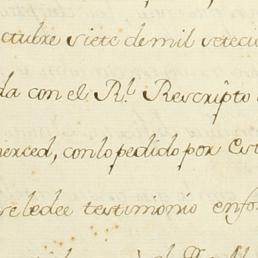 ctubre siete de mil setecie
da con el Rl. Rescripto
merced, con lo pedido por
se le dee testimonio enfo